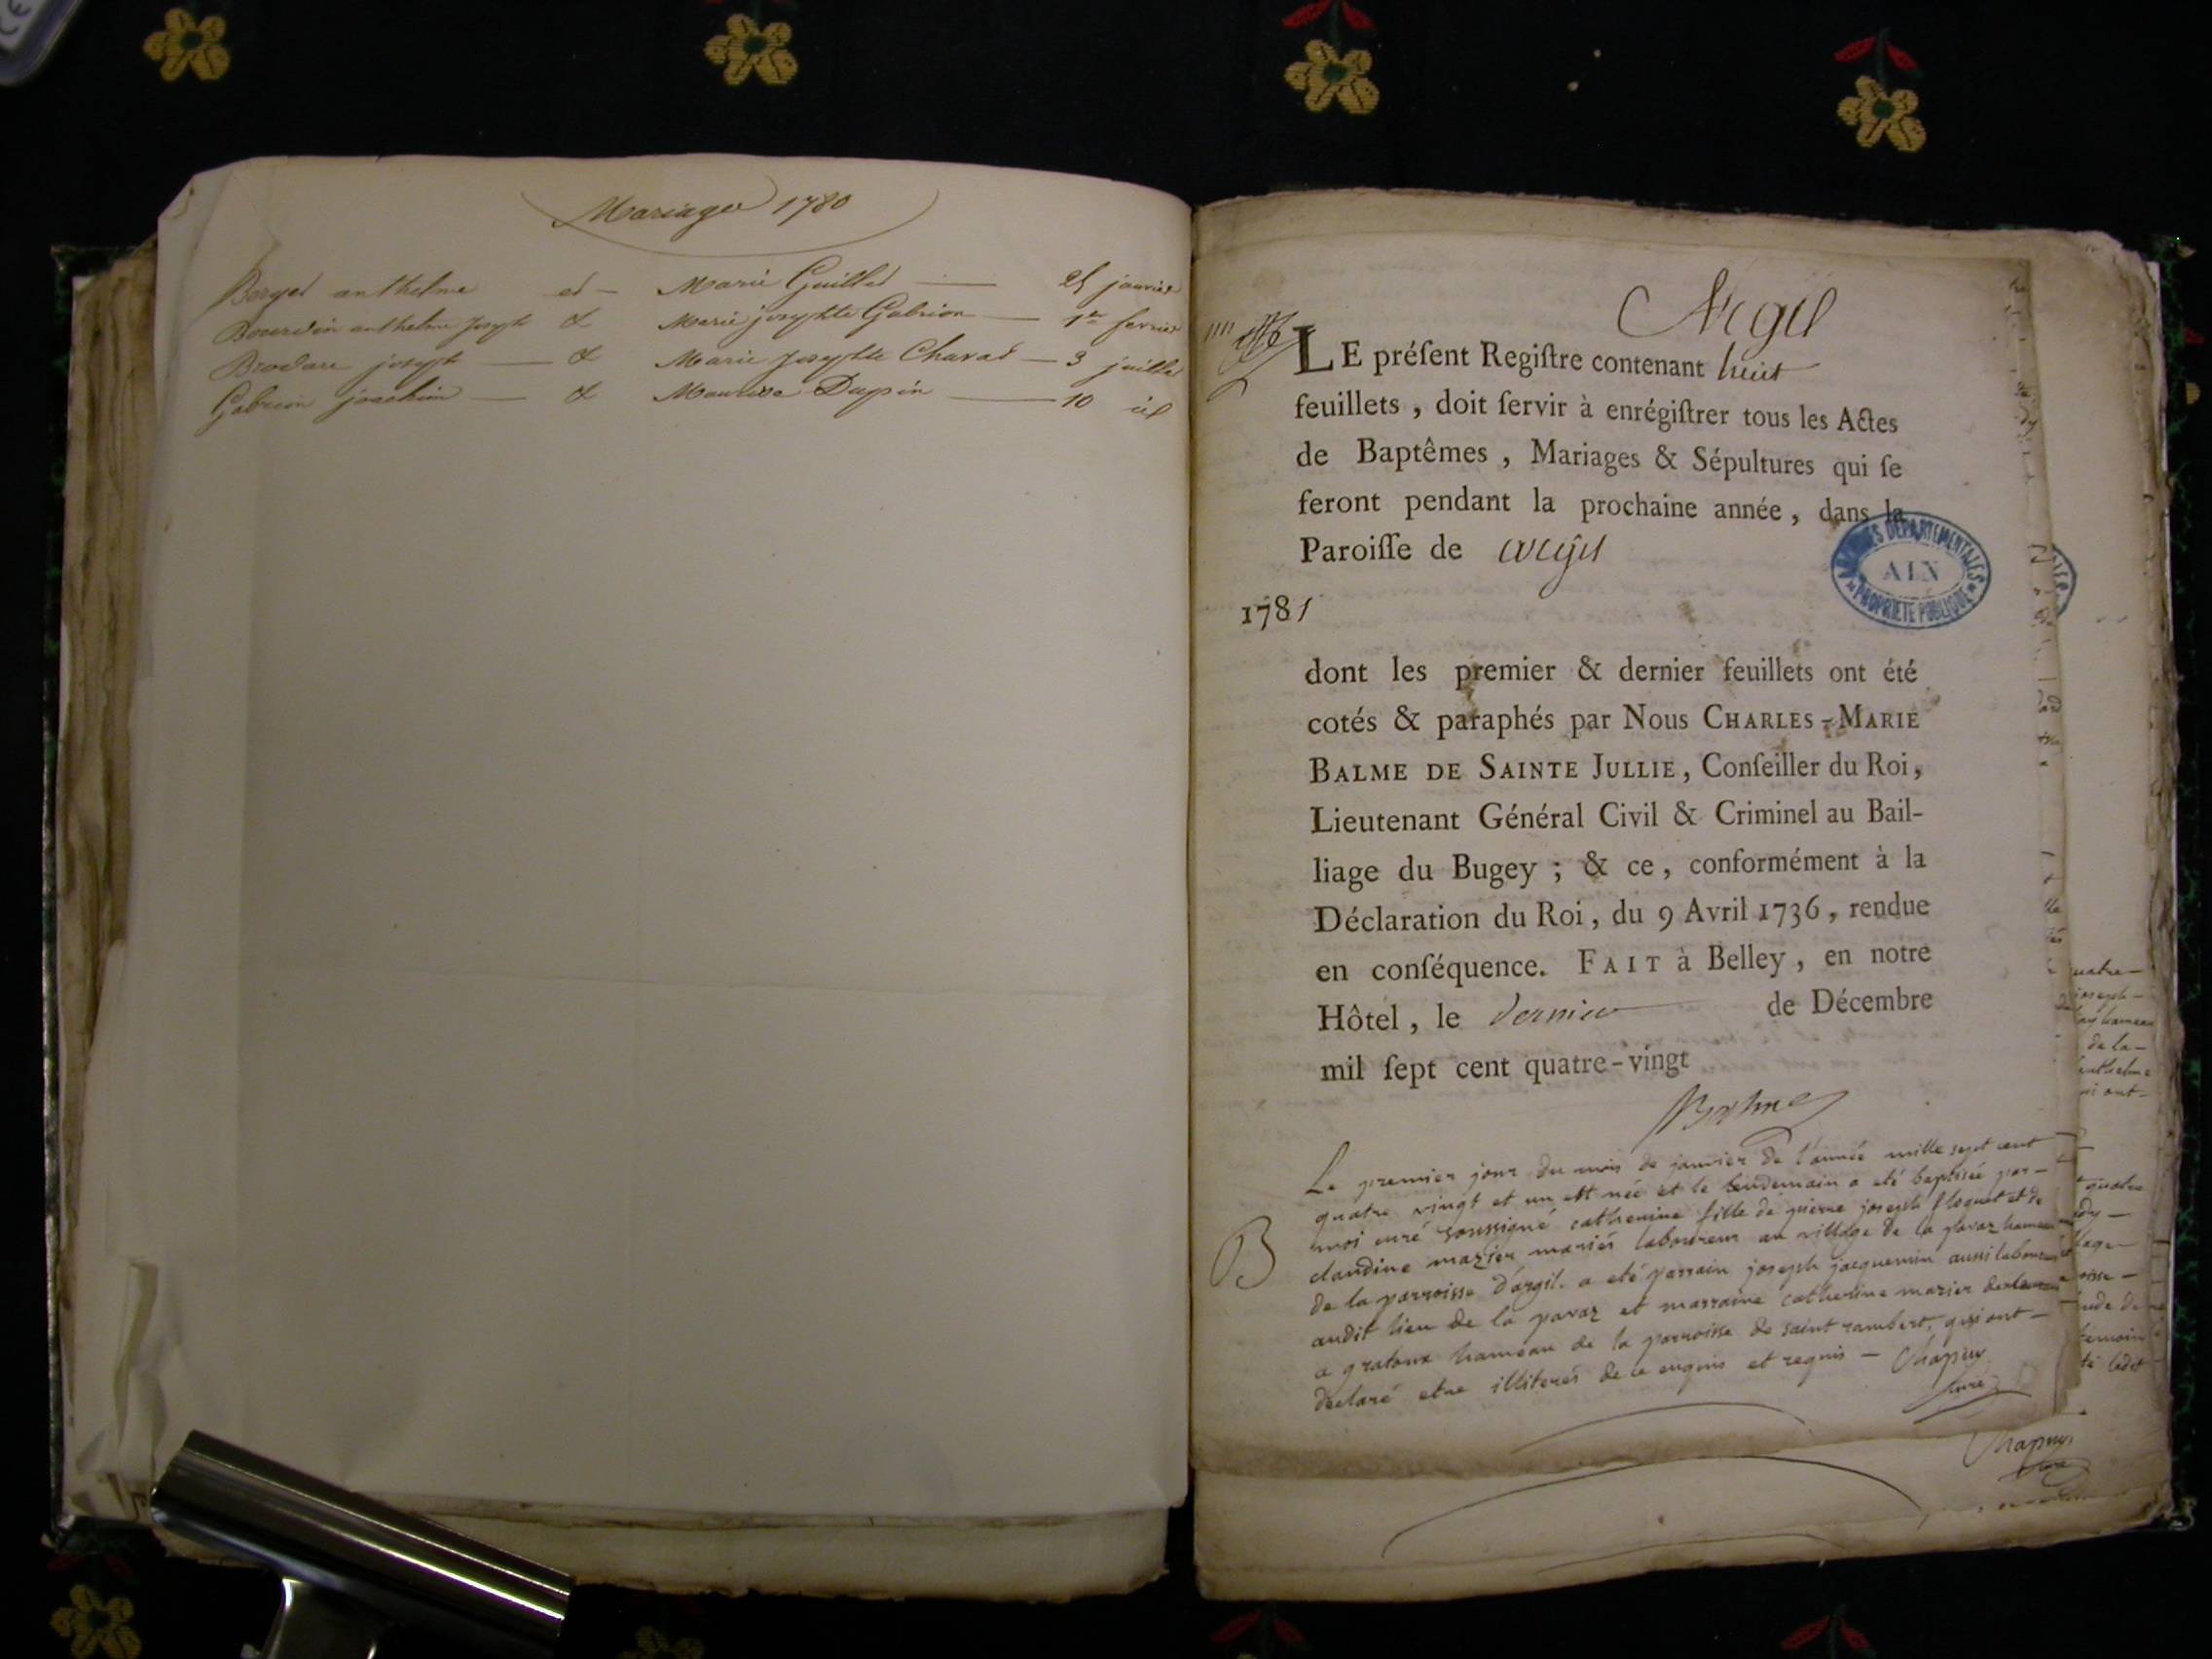 Mariages 1780
Berget anthelme et Marie Guillet 25 janvier
Bourdin anthelme Joseph & Marie josephte Gabrion 1er fevrier
Brodare joseph & Marie Josephte Charat 3 juillet
Gabrion joachim & Maurise Dupin 10 id
Argil
LE préſent Regiſtre contenant huit
feuillets, doit ſervir à enrégiſtrer tous les Actes
de Baptêmes, Mariages & Sépultures qui ſe
feront pendant la prochaine année, dans la
Paroiſſe de argil
ARCHIVES DEPARTEMENTALES
AIN
PROPRIETE PUBLIQUE
1781
dont les premier & dernier feuillets ont été
cotés & paraphés par Nous CHARLES-MARIE
BALME DE SAINTE JULLIE, Conſeiller du Roi,
Lieutenant Général Civil & Criminel au Bail-
liage du Bugey ; & ce, conformément à la
Déclaration du Roi, du 9 Avril 1736, rendue
en conſéquence. FAIT à Belley, en notre
Hôtel, le dernier de Décembre
mil ſept cent quatre-vingt
Balme
Le premier jour du mois de janvier de l'année mille sept cent
quatre vingt et un est née et le lendemain a eté baptisée par
B
moi curé soussigné catherine fille de pierre joseph floquet et de
claudine mazier mariés laboureur au village de la pavaz hameau
de la parroisse d'argil. a eté parrain joseph jacquemin aussi laboureur
audit lieu de la pavaz et marraine catherine mazier
a gratoux hameau de la parroisse de saint rambert, qui ont
declaré etre illiterés de ce enquis et requis — Chapuy
curé
uatre
joseph
hameau
de la
anthelme
ont
quatre
temoin
ledit
Chapuy
curé